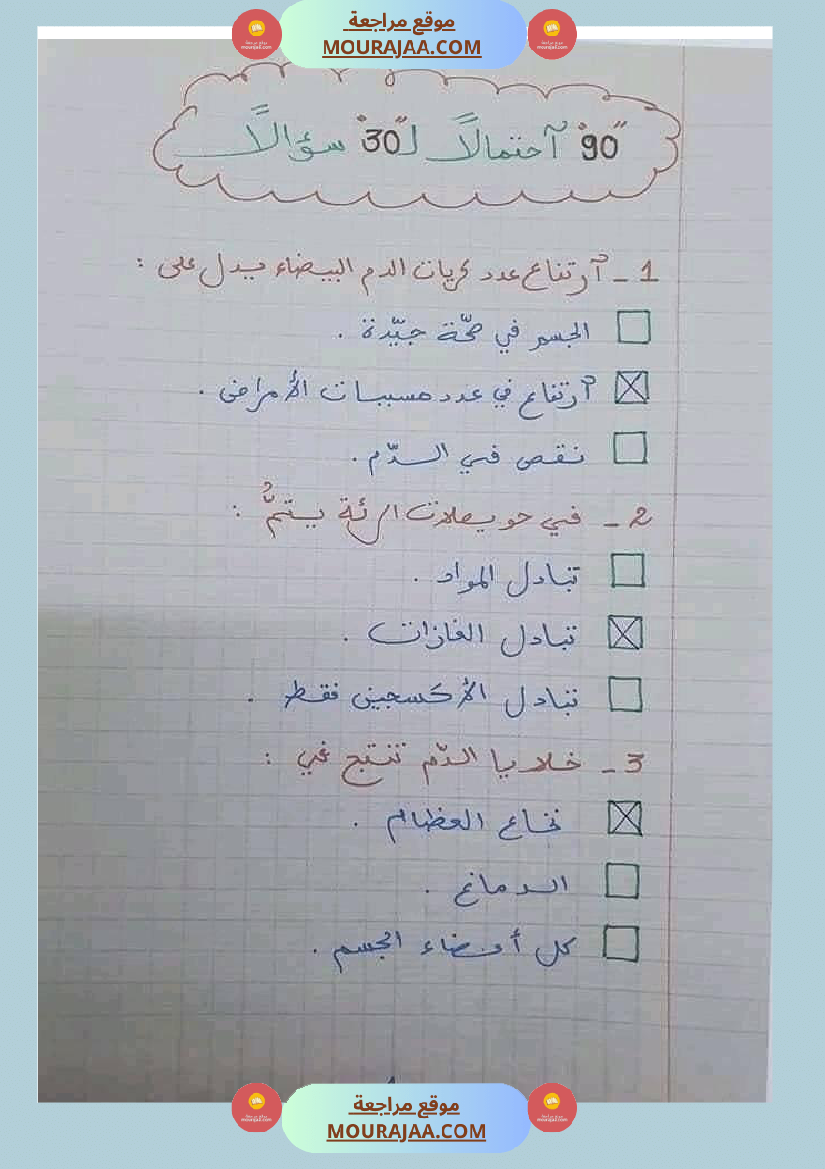 موقع مراجعة
MOURAJAA.COM
"90" آحتمالاً لـ"30" سؤالاً
1 ـ آرتفاع عدد كريات الدم البيضاء يدل على :
الجسم في صحّة جيّدة .
آرتفاع في عدد مسببات الأمراض .
نقص في الدّم .
2 ـ في حويصلات الرئة يتمُّ :
تبادل المواد .
تبادل الغازات .
تبادل الأكسجين فقط .
3 ـ خلايا الدّم تنتج في :
نخاع العظام .
الدماغ .
كل أعضاء الجسم .
موقع مراجعة
MOURAJAA.COM